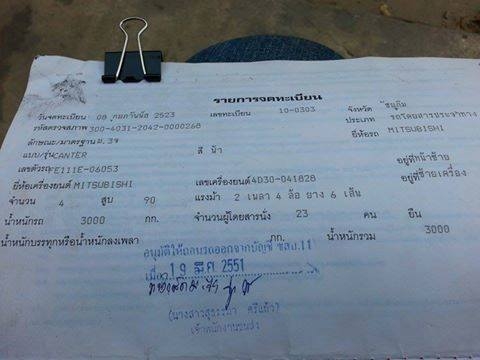 รายการจดทะเบียน
วันจดทะเบียน 08 กุมภาพันธ์ 2523 เลขทะเบียน 10-0303 จังหวัด ชัยภูมิ
รหัสตรวจสภาพ 300-4031-2042-0000268 ประเภท รถโดยสารประจำทาง
ลักษณะ/มาตรฐาน ม.3จ ยี่ห้อรถ MITSUBISHI
แบบ/รุ่น CANTER สี ฟ้า
เลขตัวรถ FE111E-06053 อยู่ที่หน้าซ้าย
ยี่ห้อเครื่องยนต์ MITSUBISHI เลขเครื่องยนต์ 4D30-041828 อยู่ที่ซ้ายเครื่อง
จำนวน 4 สูบ 90 แรงม้า 2 เพลา 4 ล้อ ยาง 6 เส้น
น้ำหนักรถ 3000 กก. จำนวนผู้โดยสารนั่ง 23 คน ยืน
น้ำหนักบรรทุกหรือน้ำหนักลงเพลา กก. น้ำหนักรวม 3000
อนุมัติให้ถอนรถออกจากบัญชี ขส.บ.11
เมื่อ 19 มีค 2551
เจ้าพนักงานขนส่ง